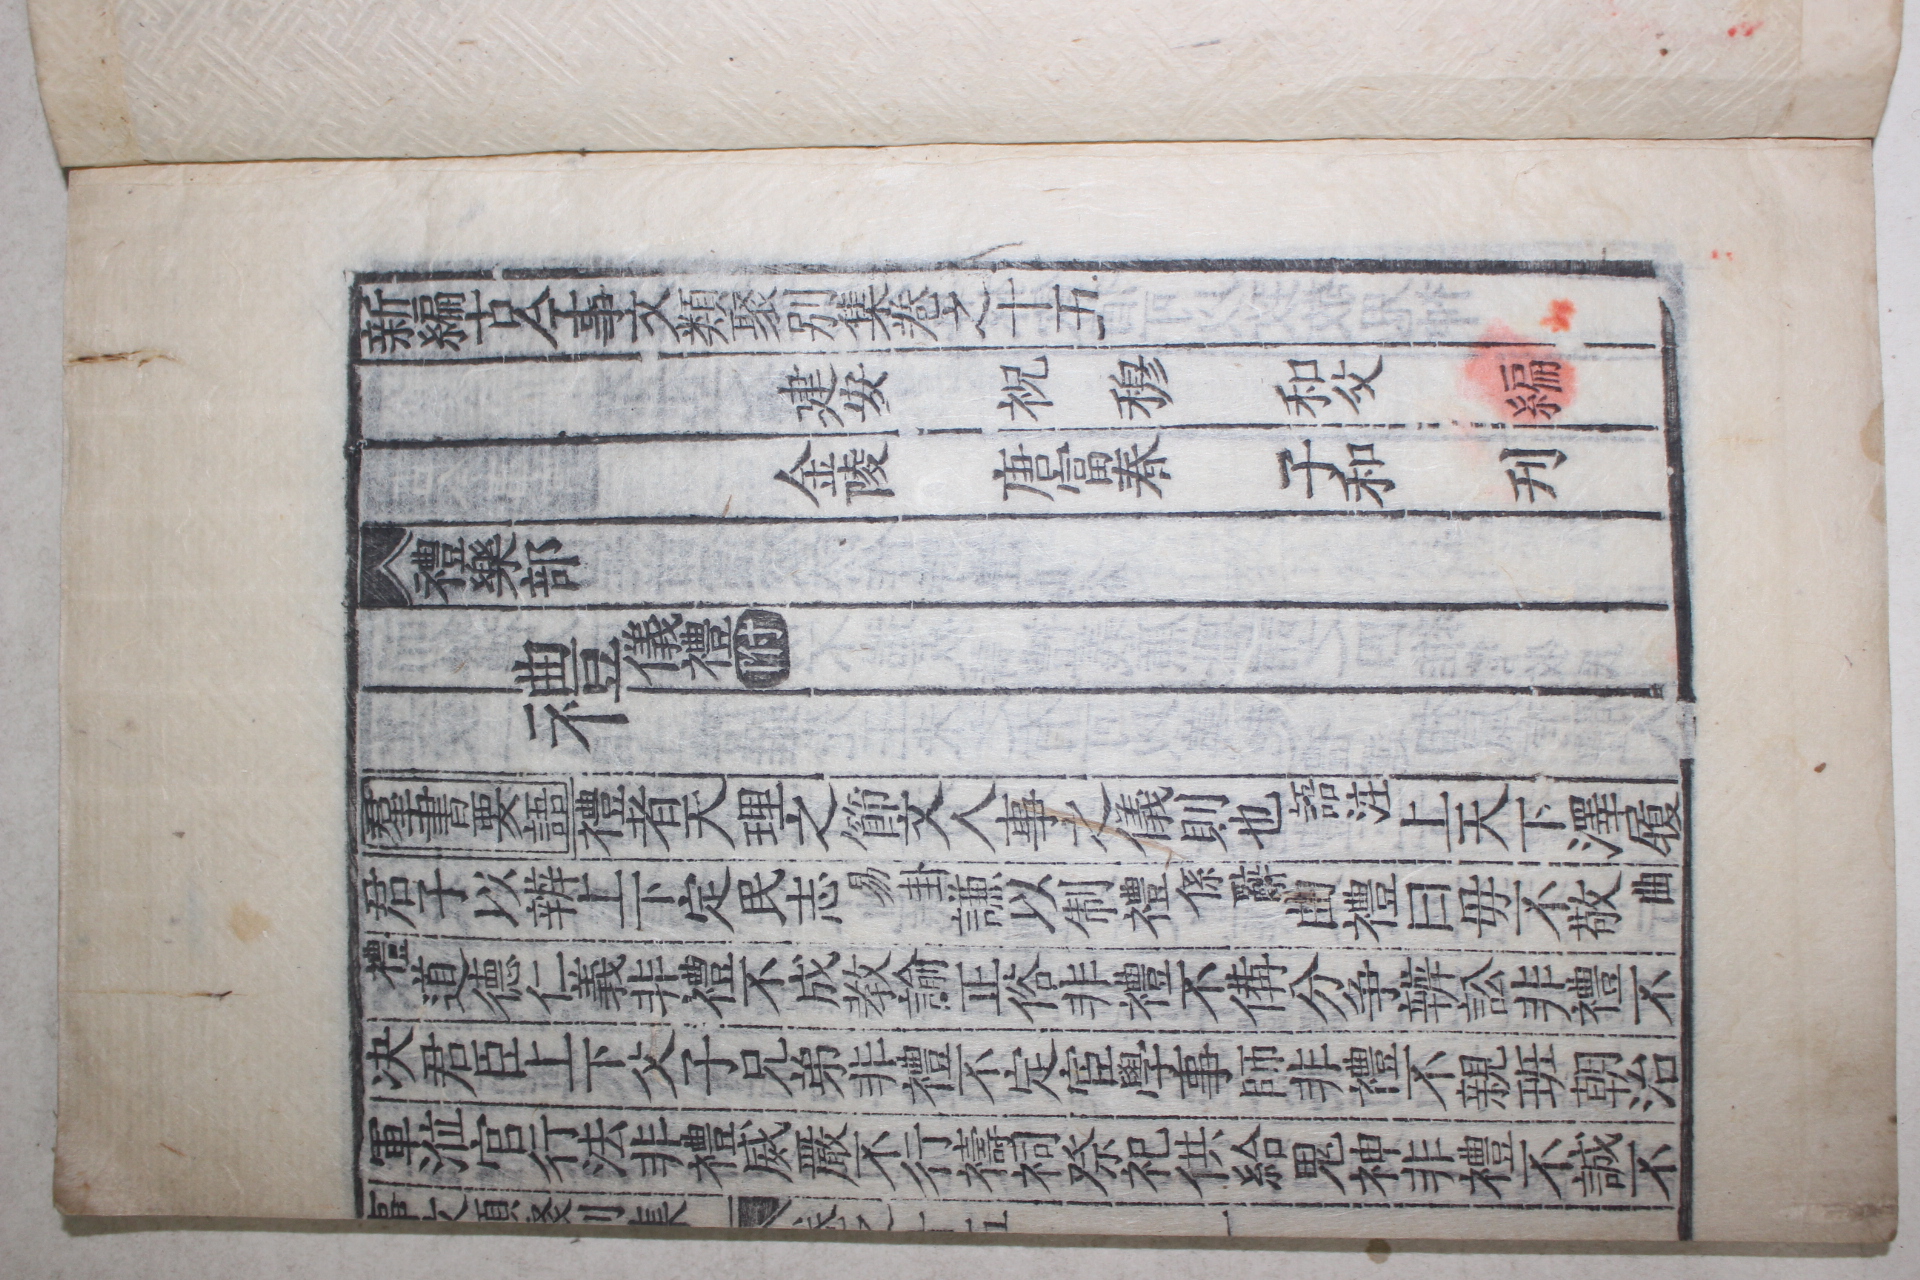 新編古今事文類聚別集卷之十五
建安 祝 穆 和父 編
金陵 唐富春 子和 刊
禮樂部
禮 儀禮附
羣書要語 禮者天理之節文人事之儀則也語注上天下澤履
君子以辨上下定民志易卦謙以制禮係辭曲禮曰毋不敬曲
禮道德仁義非禮不成敎訓正俗非禮不備分爭辨訟非禮不
決君臣上下父子兄弟非禮不定宦學事師非禮不親班朝治
軍涖官行法非禮威嚴不行禱祠祭祀供給鬼神非禮不誠不
事文類聚別集 卷之十五